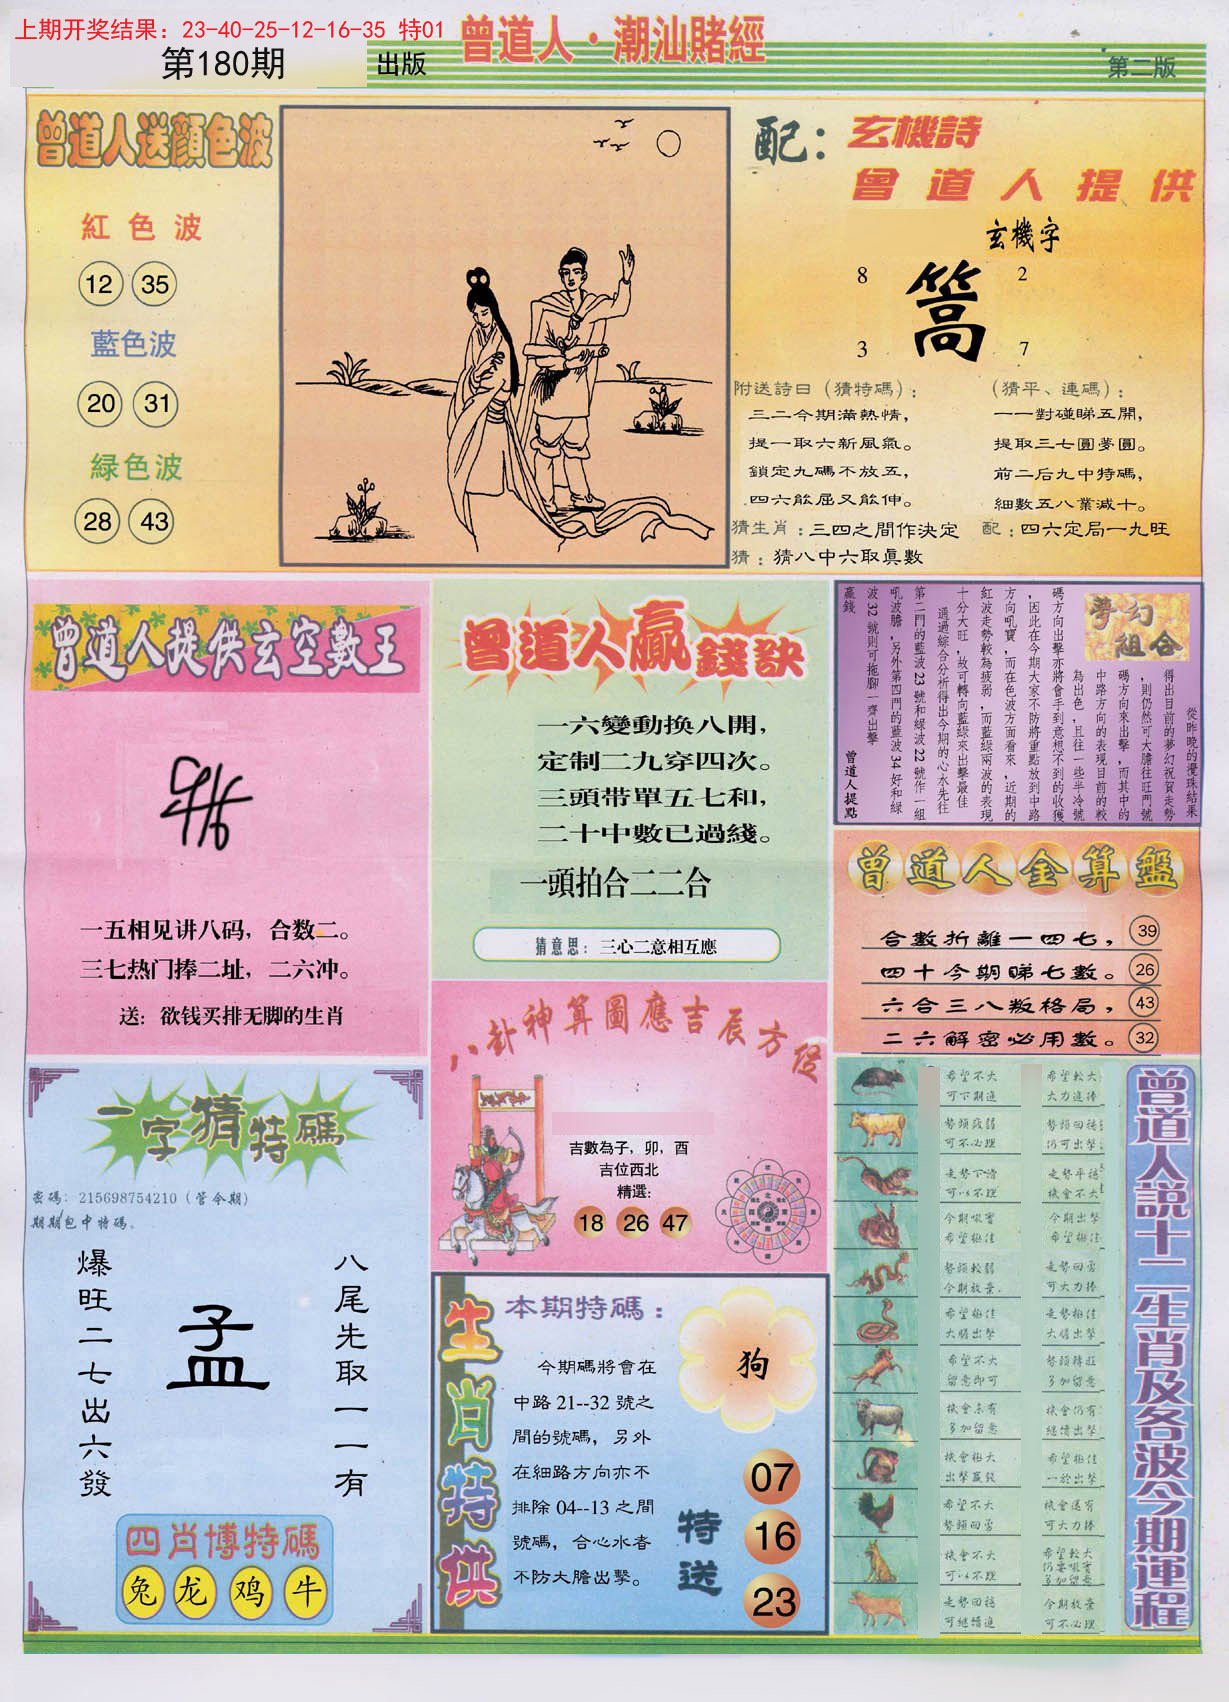 上期开奖结果：23-40-25-12-16-35 特01
第180期
出版
曾道人·潮汕賭經
第二版
曾道人送顔色波
紅色波
12 35
藍色波
20 31
緑色波
28 43
配：玄機詩
曾道人提供
玄機字
8 2
篙
3 7
附送詩曰（猜特碼）：
三二今期滿熱情，
提一取六新風氣。
鎖定九碼不放五，
四六能屈又能伸。
（猜平、連碼）：
一一對碰睇五開，
提取三七圓夢圓。
前二后九中特碼，
細數五八業減十。
猜生肖：三四之間作決定
配：四六定局一九旺
猜：猜八中六取真數
曾道人提供玄空數王
一五相见讲八码，合数二。
三七热门捧二址，二六冲。
送：欲钱买排无脚的生肖
曾道人贏錢訣
一六變動換八開，
定制二九穿四次。
三頭带單五七和，
二十中數已過綫。
一頭拍合二二合
猜意思：三心二意相互應
夢幻組合
從昨晚的攪珠結果
得出目前的夢幻祝賀走勢
，則仍然可大膽往旺門號
碼方向來出擊，而其中的
中路方向的表現目前的較
為出色，且往一些半冷號
碼方向出擊亦將會手到意想不到的收獲
，因此在今期大家不防將重點放到中路
方向吼寶，而在色波方面看來，近期的
紅波走勢較為疲弱，而藍綠兩波的表現
十分大旺，故可轉向藍綠來出擊最佳
通過綜合分析得出今期的心水先往
第二門的藍波23號和緑波22號作一組
吼波膽，另外第四門的藍波34好和緑
波32號則可拖腳一齊出擊
贏錢
曾道人提點
曾道人金算盤
合數折離一四七， 39
四十今期睇七數。 26
六合三八叛格局， 43
二六解密必用數。 32
八卦神算圖應吉辰方位
吉數為子，卯，酉
吉位西北
精選：
18 26 47
一字猜特碼
密碼：215698754210（管今期）
期期包中特碼。
八尾先取一一有
孟
爆旺二七出六發
四肖博特碼
兔 龙 鸡 牛
生肖特供
本期特碼：
今期碼將會在
中路21--32號之
間的號碼，另外
在細路方向亦不
排除04--13之間
號碼，合心水者
不防大膽出擊。
狗
特送
07
16
23
曾道人説十二生肖及各波今期運程
希望不大
可下期進
希望較大
大力追捧
勢頭疲弱
可不必理
走勢平穩
機會不大
今期吸實
希望極佳
今期出擊
希望極佳
勢頭較弱
今期放棄.
走勢回勇
可大力捧
希望極佳
大膽出擊
走勢極佳
大膽出擊
希望不大
留意即可
勢頭轉旺
多加留意
機會未有
多加留意
機會仍有
繼續出擊
機會極大
出擊贏發
希望極佳
一於出擊
希望不大
勢頭回勇
機會還有
可大力捧
機會不大
可以不理
希望較大
走勢回穩
可繼續進
今期放棄
可不必理